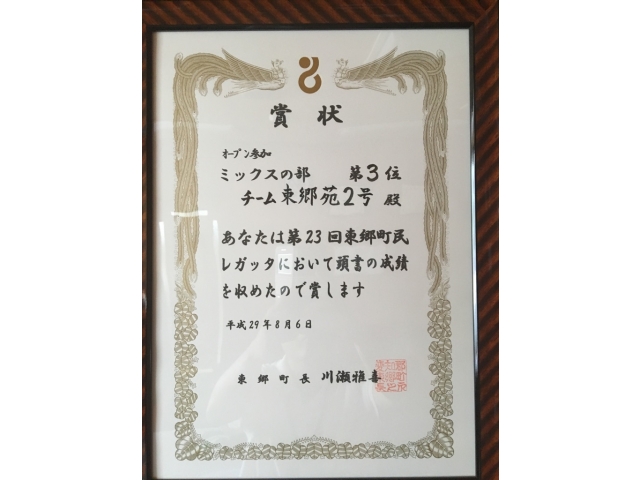 賞状
オープン参加
ミックスの部 第3位
チーム東郷苑2号 殿
あなたは第23回東郷町民
レガッタにおいて頭書の成績
を収めたので賞します
平成29年8月6日
東郷町長 川瀬雅喜